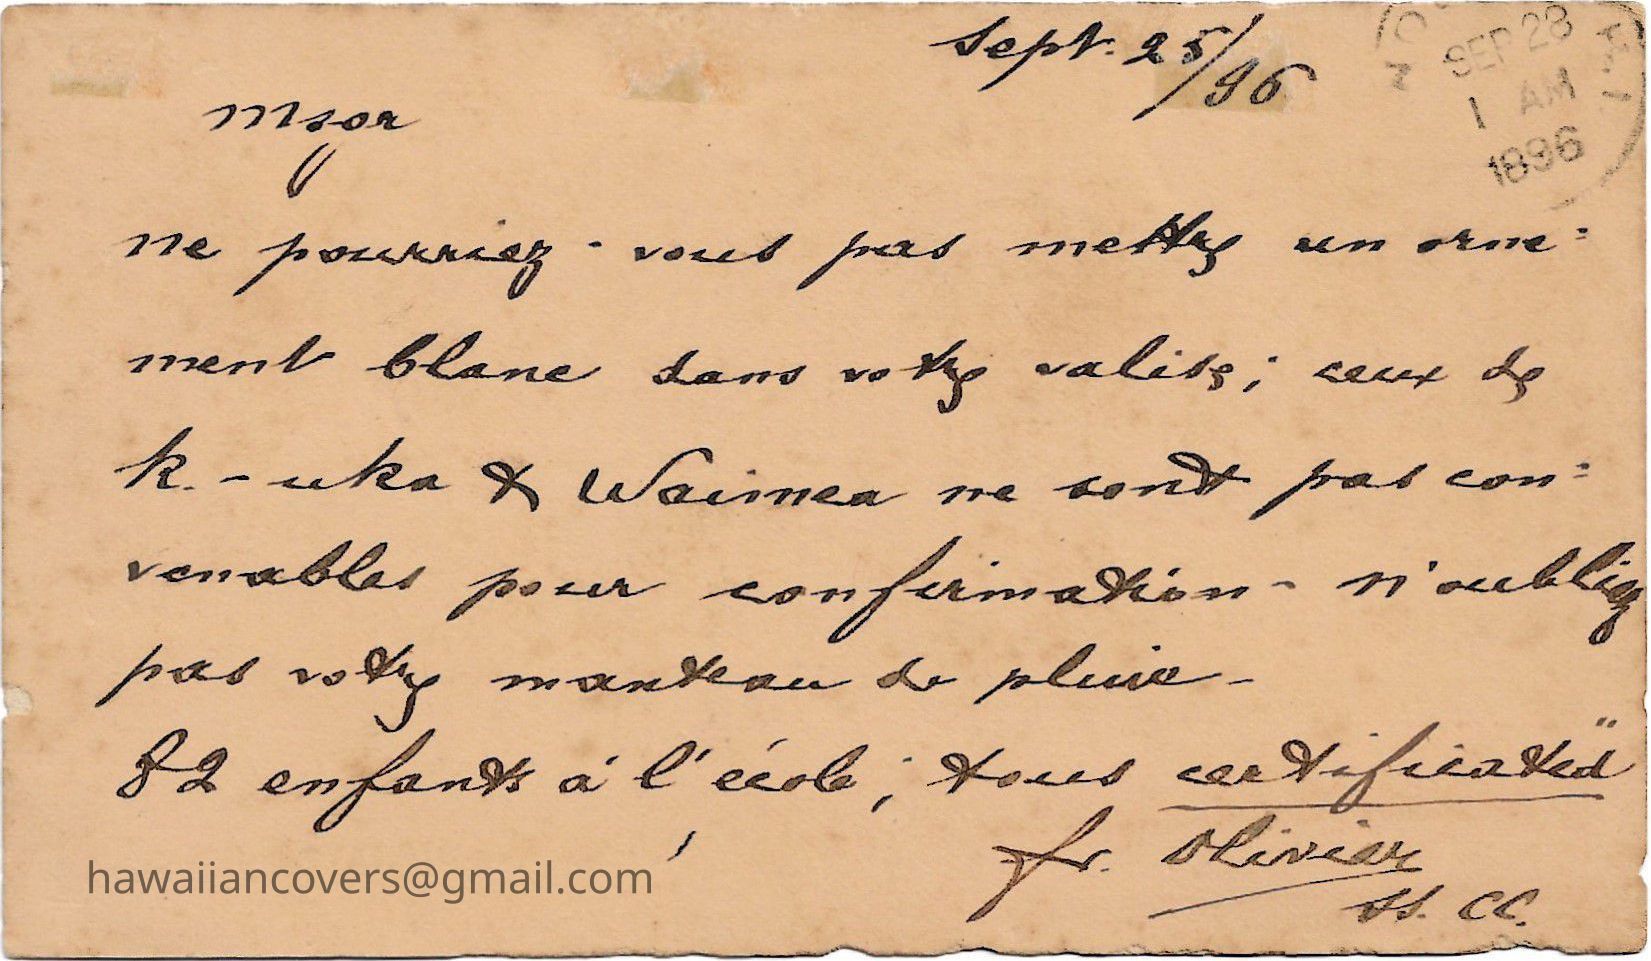 Sept. 25/96
SEP 28
1 AM
1896
Msgr
ne pourriez-vous pas mettre un orne=
ment blanc dans votre valise; ceux de
K.-uka & Waimea ne sont pas con=
venables pour confirmation - N'oubliez
pas votre manteau de pluie -
82 enfants à l'école; tous certificated
fr. Olivier
SS. CC.
hawaiiancovers@gmail.com